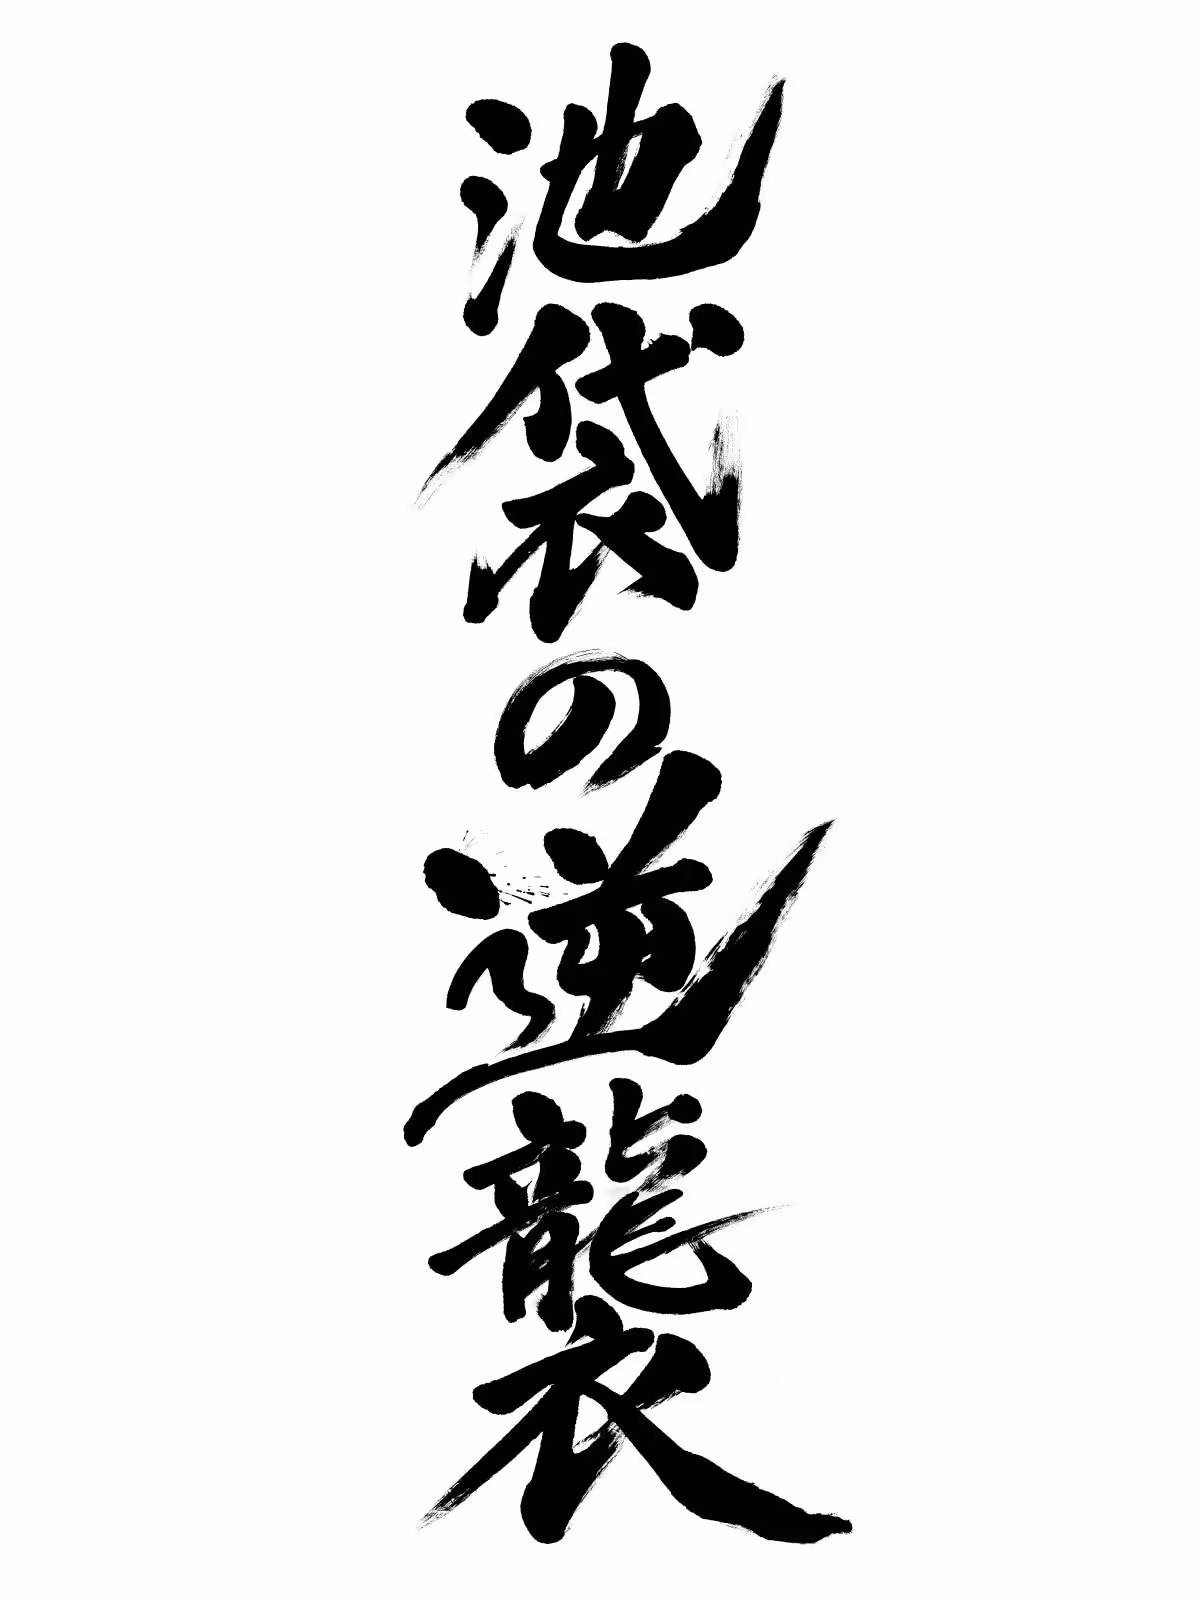 池袋の逆襲